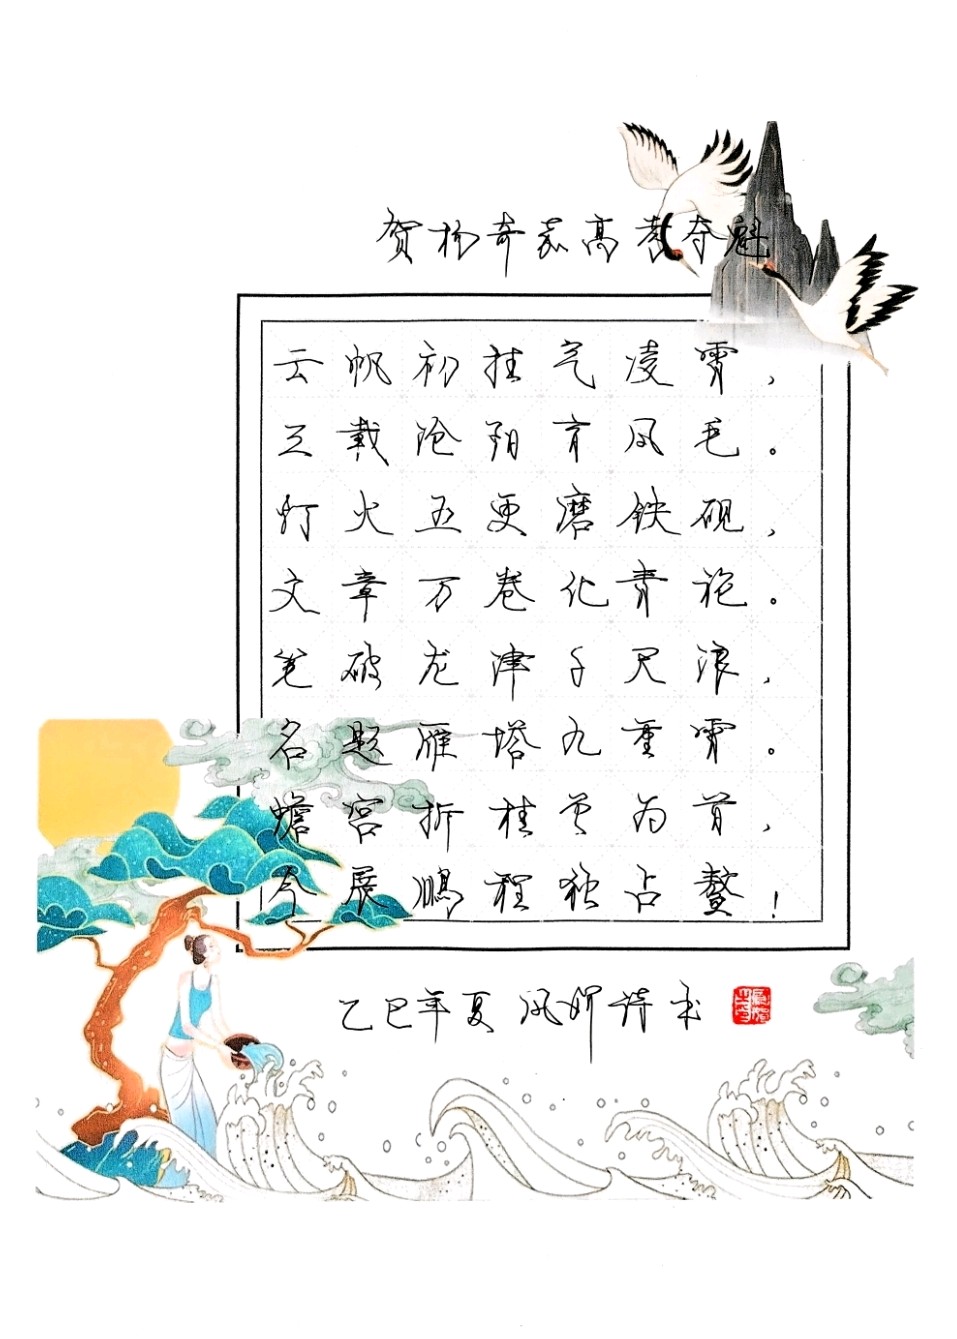 贺杨奇蒸高考夺魁
云帆初挂气凌霄，
三载沧阳育凤毛。
灯火五更磨铁砚，
文章万卷化青袍。
笔破龙津千尺浪，
名题雁塔九重霄。
蟾宫折桂君为首，
今展鹏程独占鳌！
乙巳年夏 风妍诗书